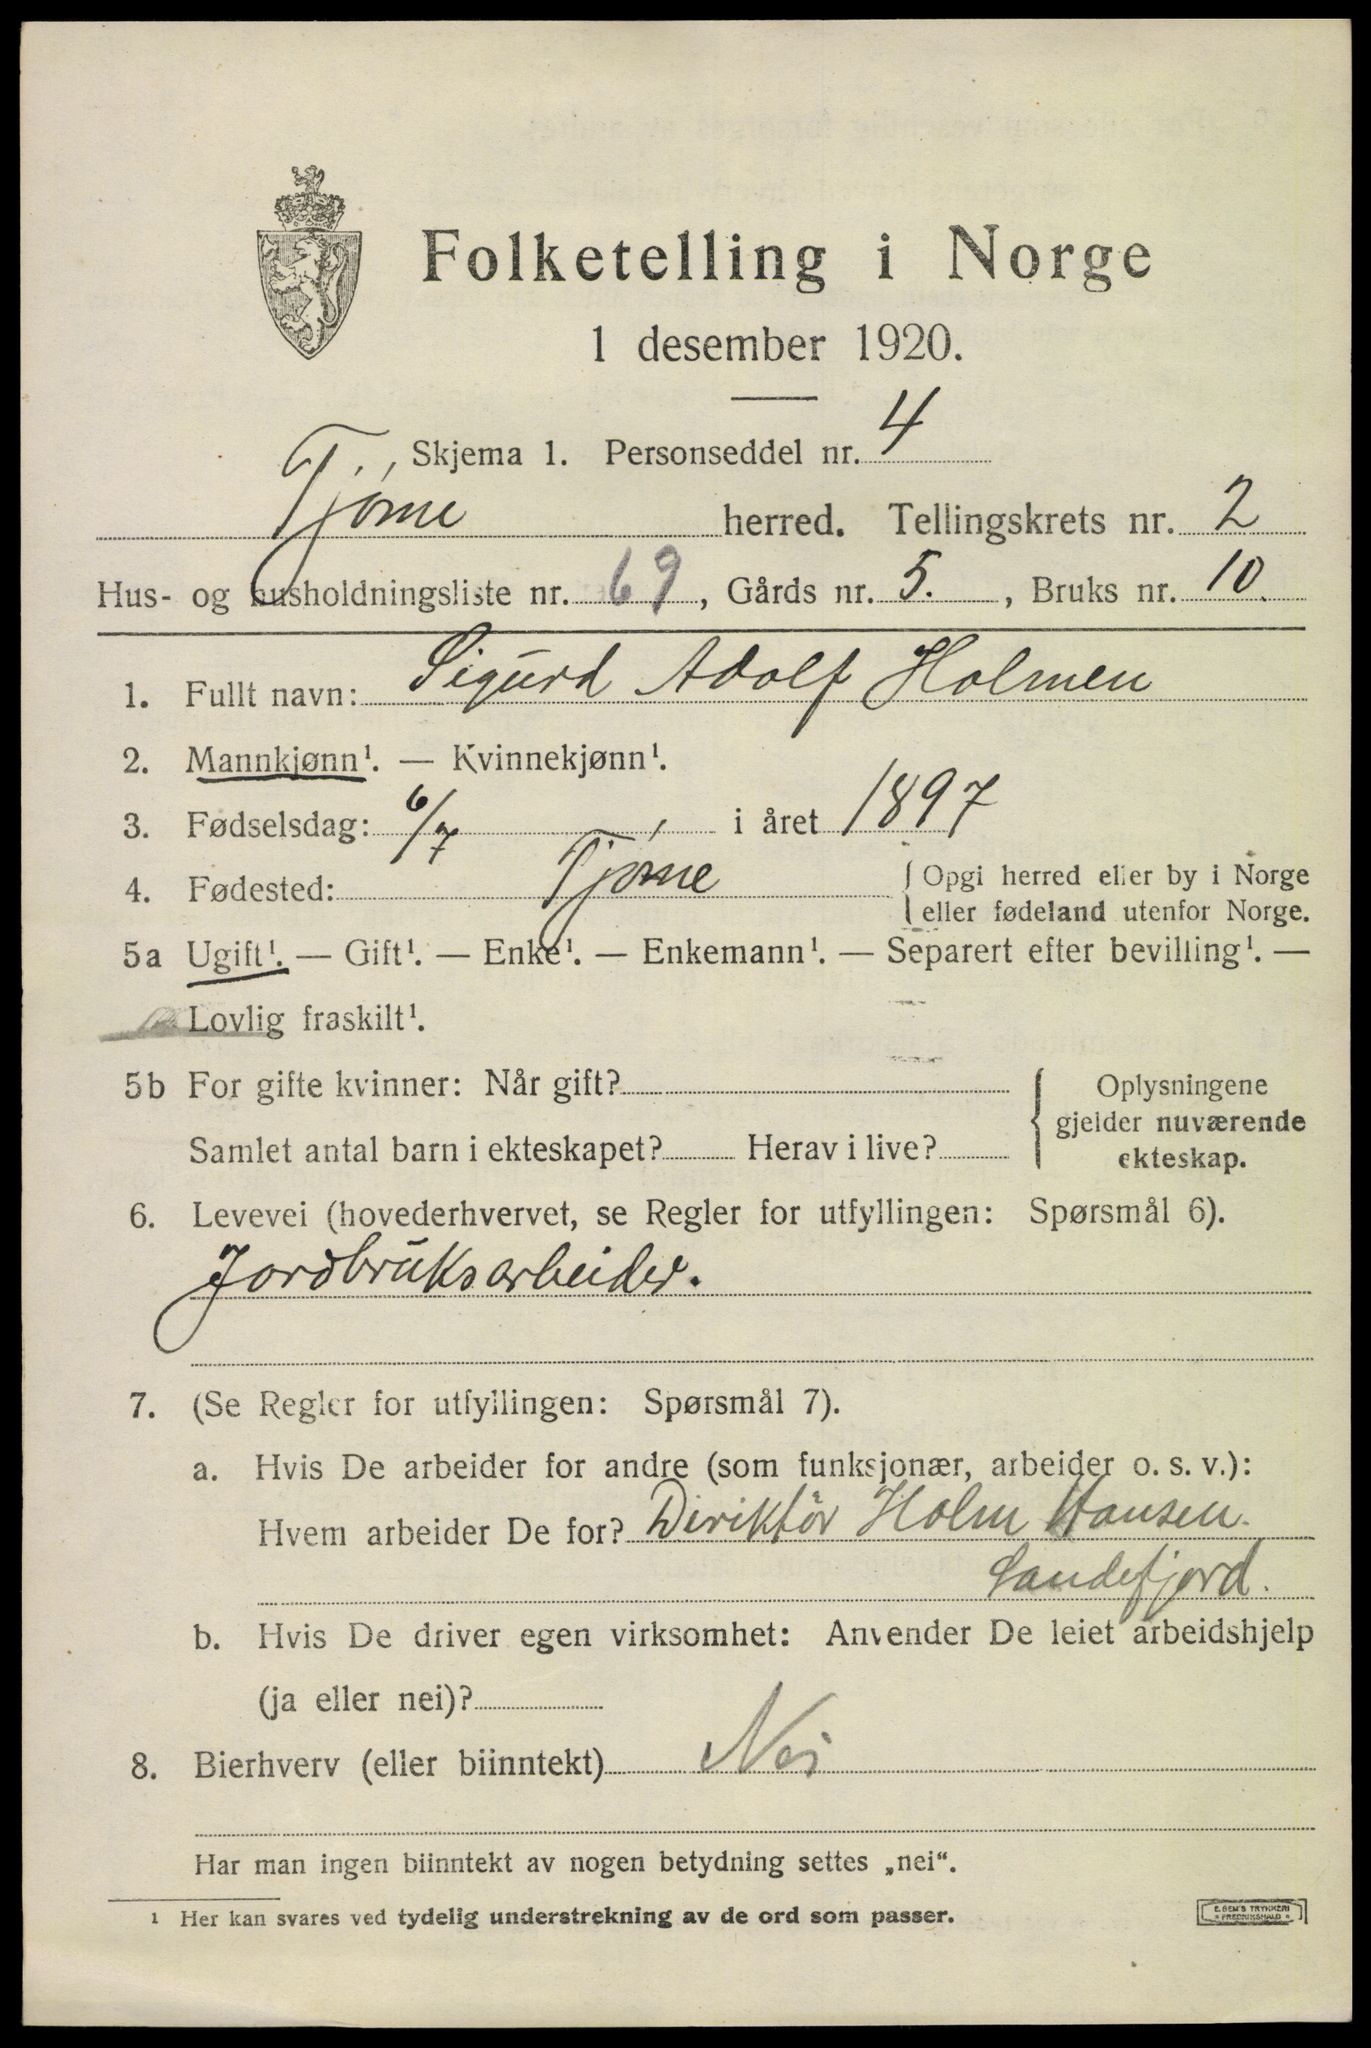 Folketelling i Norge
1 desember 1920.
Skjema 1. Personseddel nr. 4
Tjøme herred. Tellingskrets nr. 2
Hus- og husholdningsliste nr. 69, Gårds nr. 5., Bruks nr. 10.
1. Fullt navn: Sigurd Adolf Holmen
2. Mannkjønn¹. — Kvinnekjønn¹.
3. Fødselsdag: 6/7 i året 1897
4. Fødested: Tjøme { Opgi herred eller by i Norge
eller fødeland utenfor Norge.
5a Ugift¹. — Gift¹. — Enke¹. — Enkemann¹. — Separert efter bevilling¹. —
Lovlig fraskilt¹.
5b For gifte kvinner: Når gift? { Oplysningene
gjelder nuværende
Samlet antal barn i ekteskapet? Herav i live? ekteskap.
6. Levevei (hovederhvervet, se Regler for utfyllingen: Spørsmål 6).
Jordbruksarbeider.
7. (Se Regler for utfyllingen: Spørsmål 7).
a. Hvis De arbeider for andre (som funksjonær, arbeider o. s. v.):
Hvem arbeider De for? Diriktör Holm Hansen.
Sandefjord.
b. Hvis De driver egen virksomhet: Anvender De leiet arbeidshjelp
(ja eller nei)?
8. Bierhverv (eller biinntekt) Nei
Har man ingen biinntekt av nogen betydning settes „nei“.
¹ Her kan svares ved tydelig understrekning av de ord som passer.
E. SEM'S TRYKKERI
* FREDRIKSHALD *